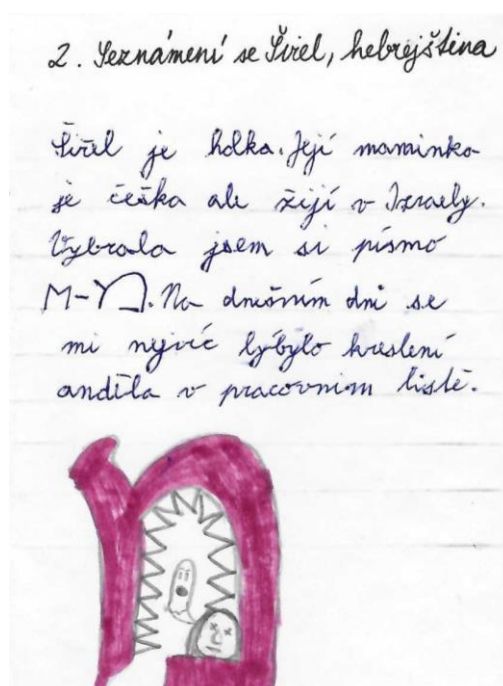 2. Seznámení se Širel, hebrejština
Širel je holka. Její maminka
je češka ale žijí v Izraely.
Vybrala jsem si písmo
M-מ. Na dnešním dni se
mi nejvíc lýbylo kreslení
anděla v pracovnim listě.